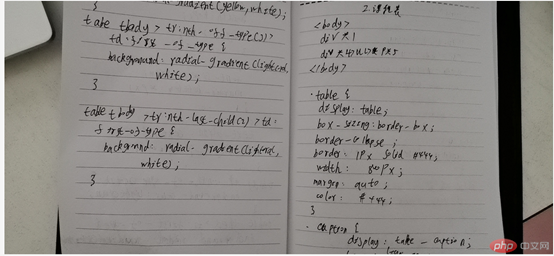 }
gradient(yellow, white);
table tbody > tr:nth-of-type(3) >
td:first-of-type {
background: radial-gradient(lightcoral,
white);
}
table tbody > tr:nth-last-child(2) > td:
first-of-type {
background: radial-gradient(lightcoral,
white);
}
2. 课程表
<body>
div
</body>
.table {
display: table;
box-sizing: border-box;
border-collapse
border: 1px solid #444;
width: px;
margin: auto;
color: #444;
}
.caption {
display: table-caption;
php 中文网